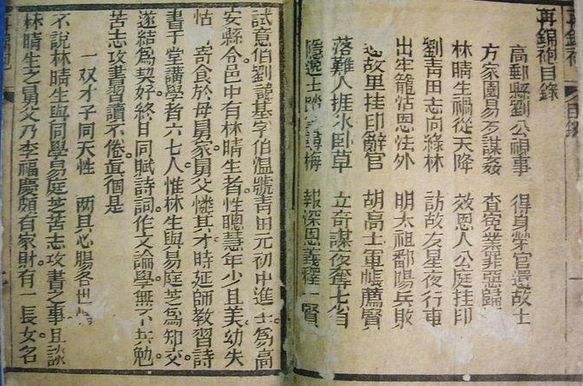 再錦袍目錄
高郵縣劉公視事 得身榮官還故土
方家園易芝謀姦 查寃業罪惡歸
林晴生禍從天降 效恩人公庭挂印
劉青田志尚綠林 訪故友星夜行車
出牢籠怙恩性外 明太祖鄱陽兵敗
故里挂印辭官 胡高士軍帳薦賢
落難人捱氷卧草 立奇謀夜奪七省
隱逸士 尋梅 報深恩義釋一賢
試意伯劉諱基字伯溫號青田元初中進士爲高
安縣令邑中有林晴生者性聰慧年少且美幼失
怙 寄食於母舅家舅父憐其才時延師教習詩
書于堂講學者六七人惟林生與易庭芝爲知交
遂結爲契好終日同賦詩詞作文論學無不共勉
苦志攻書習讀不倦眞個是
一双才子同天性 两具心腸各世
不說林晴生與同學易庭芝苦志攻書之事且談
林晴生之舅父乃李福慶頗有家財有一長女名